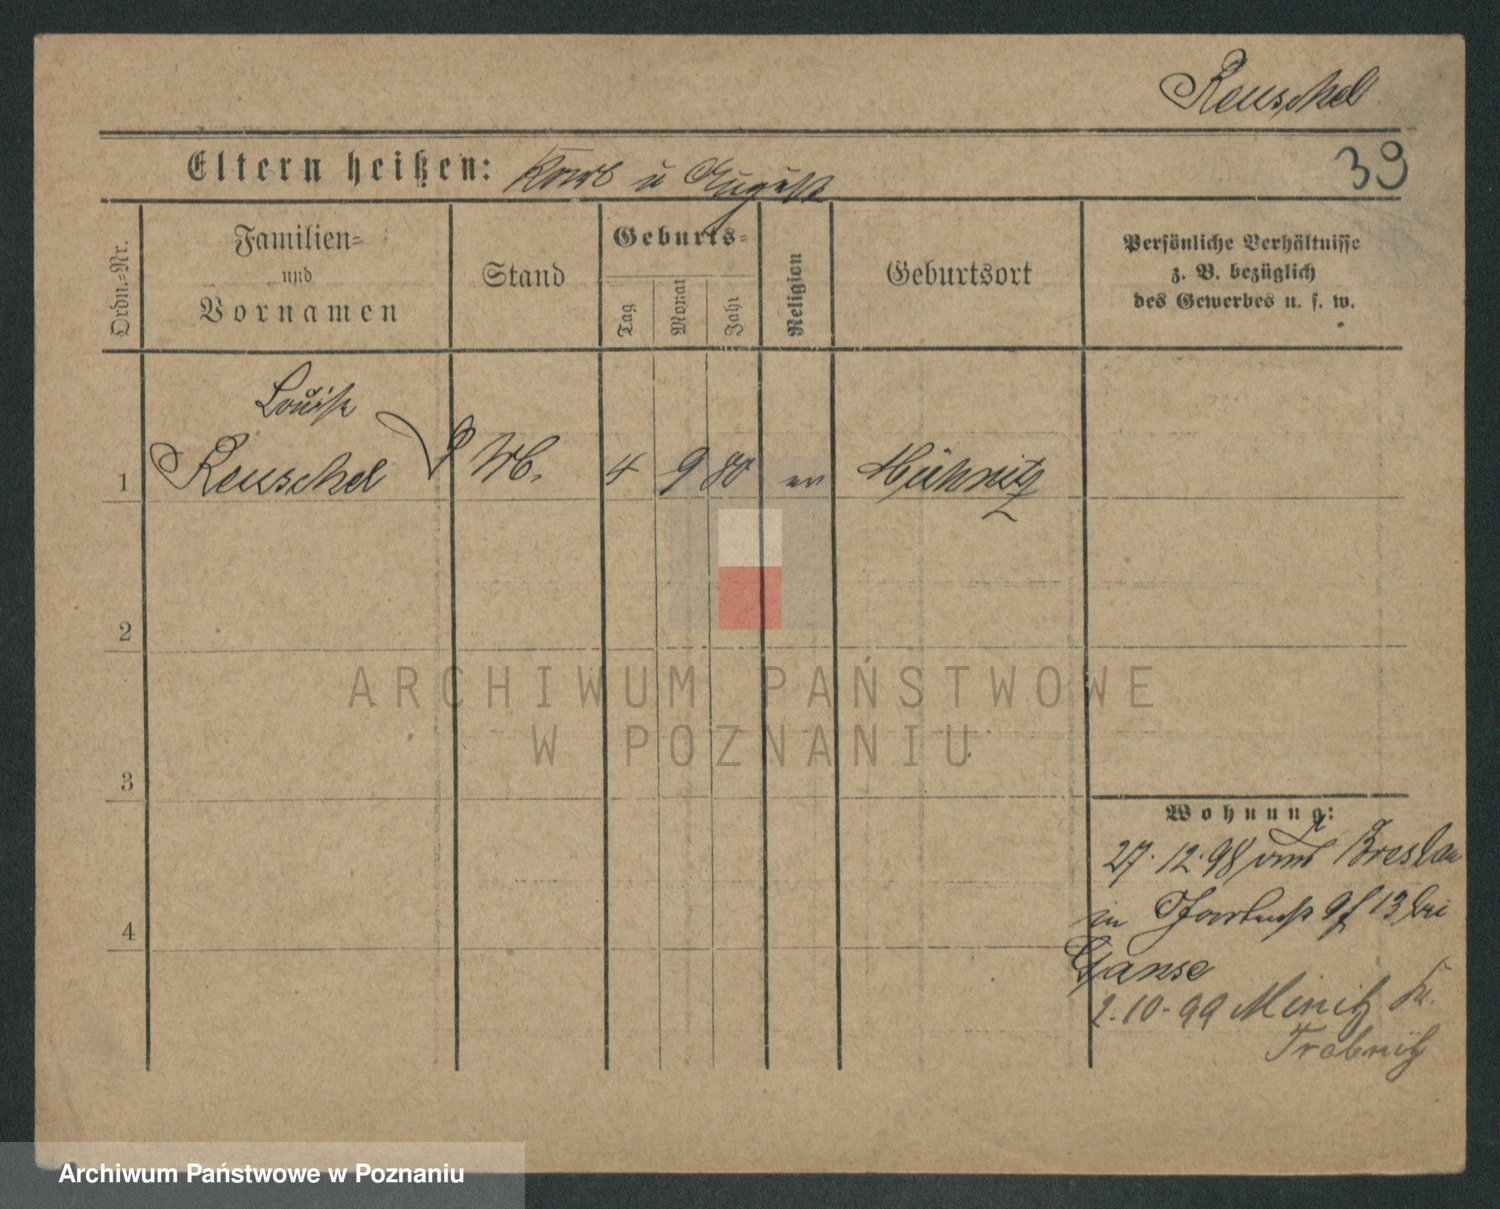 Reuschel
39
Eltern heißen: Karl u August
Ordn.-Nr.
Familien-
und
Vornamen
Stand
Geburts-
Tag
Monat
Jahr
Religion
Geburtsort
Persönliche Verhältnisse
z. B. bezüglich
des Gewerbes u. s. w.
Louise
1 Reuschel 4 9 80 ev
2
3
4
ARCHIWUM PAŃSTWOWE
W POZNANIU
Wohnung:
27. 12. 98 aus Breslau
in 13 bei
Ganse
2. 10. 99
Trebnitz
Archiwum Państwowe w Poznaniu